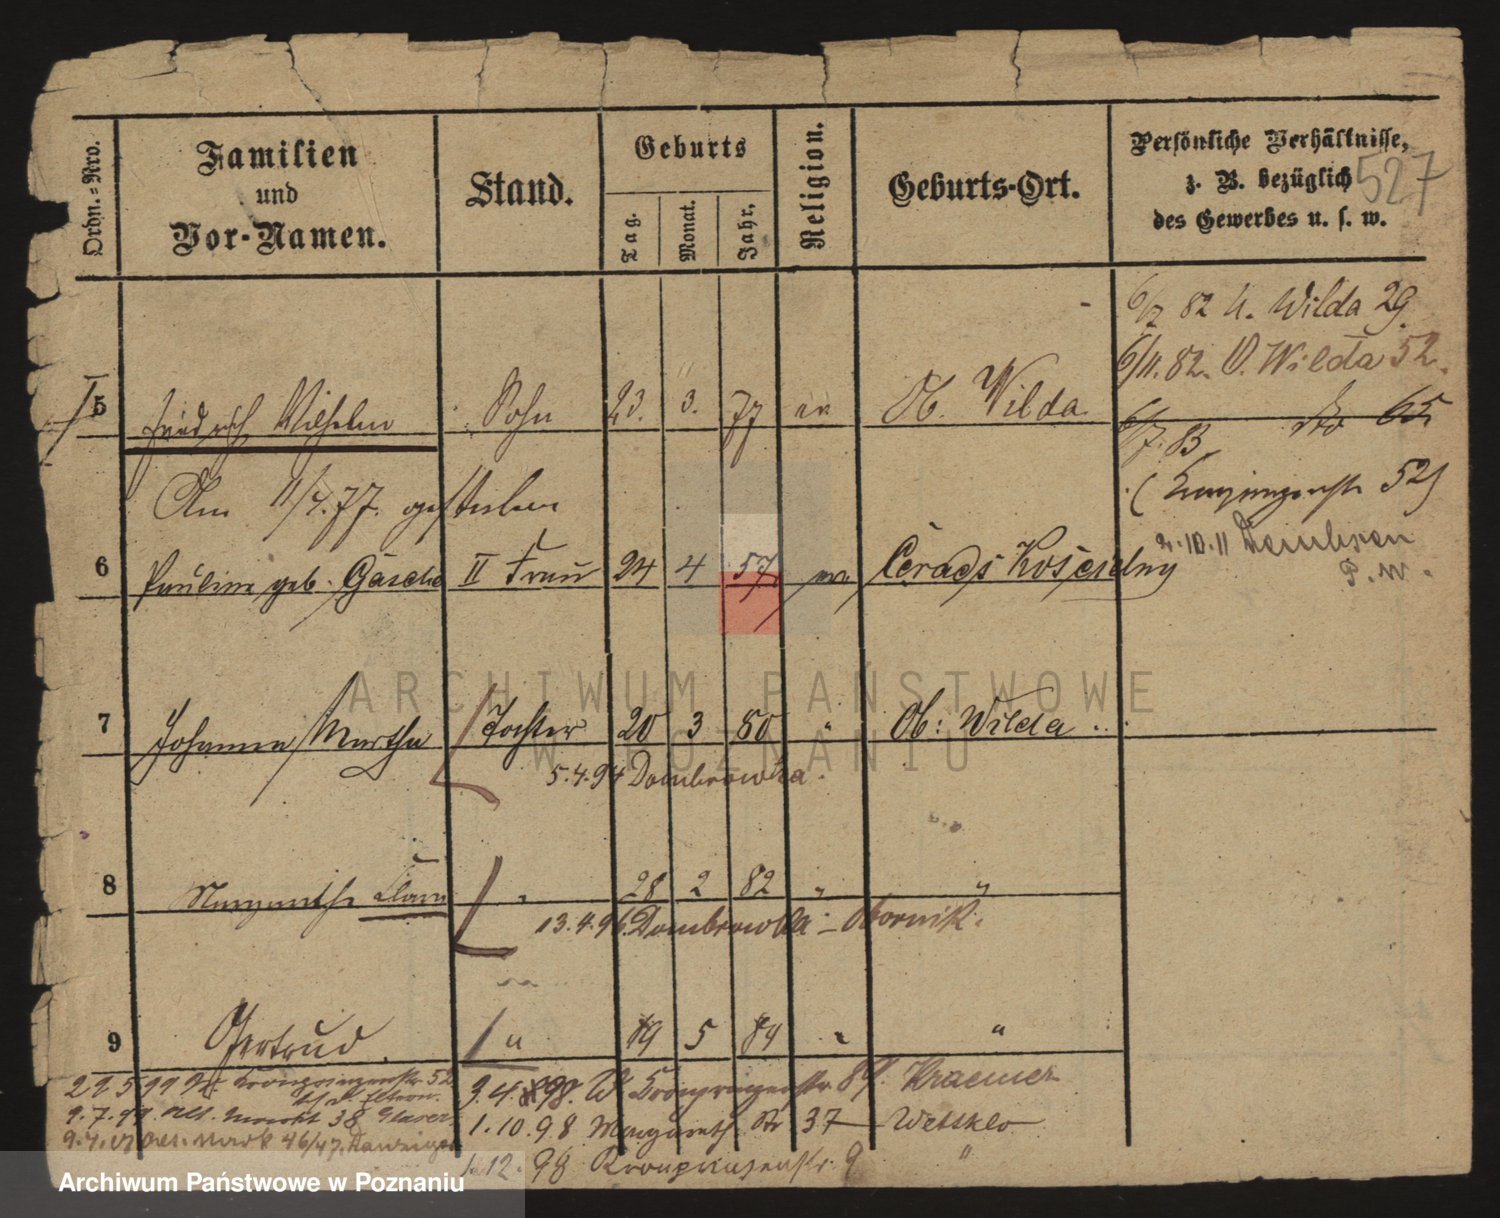 Ordn.=Nro.
Familien
und
Vor-Namen.
Stand.
Geburts
Tag.
Monat.
Jahr.
Religion.
Geburts-Ort.
Persönliche Verhältnisse,
z. B. bezüglich
des Gewerbes u. s. w.
527
82 U. Wilda 29
6/11. 82. O. Wilda 52.
5 Friedrich Wilhelm Sohn 23. 3. 77 ev Ob. Wilda
6/7. 83 65
Am 11/4. 77. gestorben
(Kronprinzenstr 52)
2.10.11 P. W.
6 Pauline geb. Gasche II Frau 24 4 57 ev
7 Johanna Martha Tochter 20 3 80 " Ob: Wilda
5.4.94 Dombrowka.
8 Margarethe Clara " 28 2 82 " "
13.4.96. Dombrowka - Obornik.
9 Gertrud " 19 5 84 " "
22 5 99 Kronprinzenstr. 52
3.4.98. W Kronprinzenstr. 84. Kraemer
9.7.99 Alt. Markt 38 Glaser
1.10.98 Margareth Str 37
9.4.01 Alt. Markt 46/47.
1.12.98 Kronprinzenstr. 9 "
ARCHIWUM PAŃSTWOWE
W POZNANIU
Archiwum Państwowe w Poznaniu